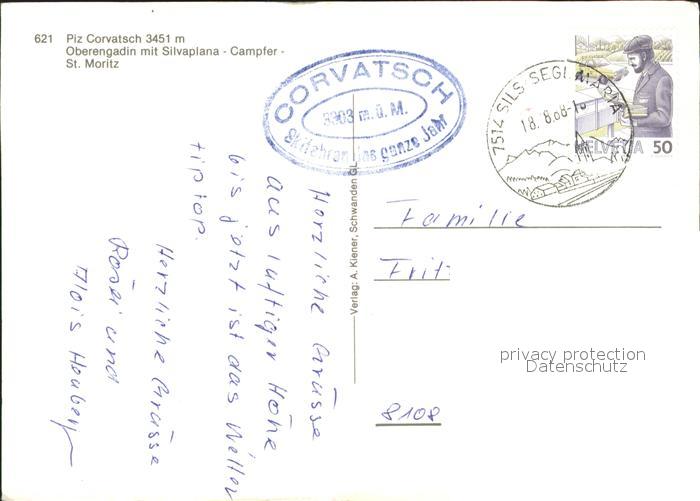 621 Piz Corvatsch 3451 m
Oberengadin mit Silvaplana - Campfer -
St. Moritz
CORVATSCH
3303 m.ü.M.
Skifahren das ganze Jahr
7514 SILS-SEGL MARIA
18.8.88-16
HELVETIA 50
Herzliche Grüsse
aus luftiger Höhe
bis jetzt ist das Wetter
tip top.
Herzliche Grüsse
Rösli und
Alois
Verlag: A. Kiener, Schwanden GL
Familie
Fritz
privacy protection
Datenschutz
8108